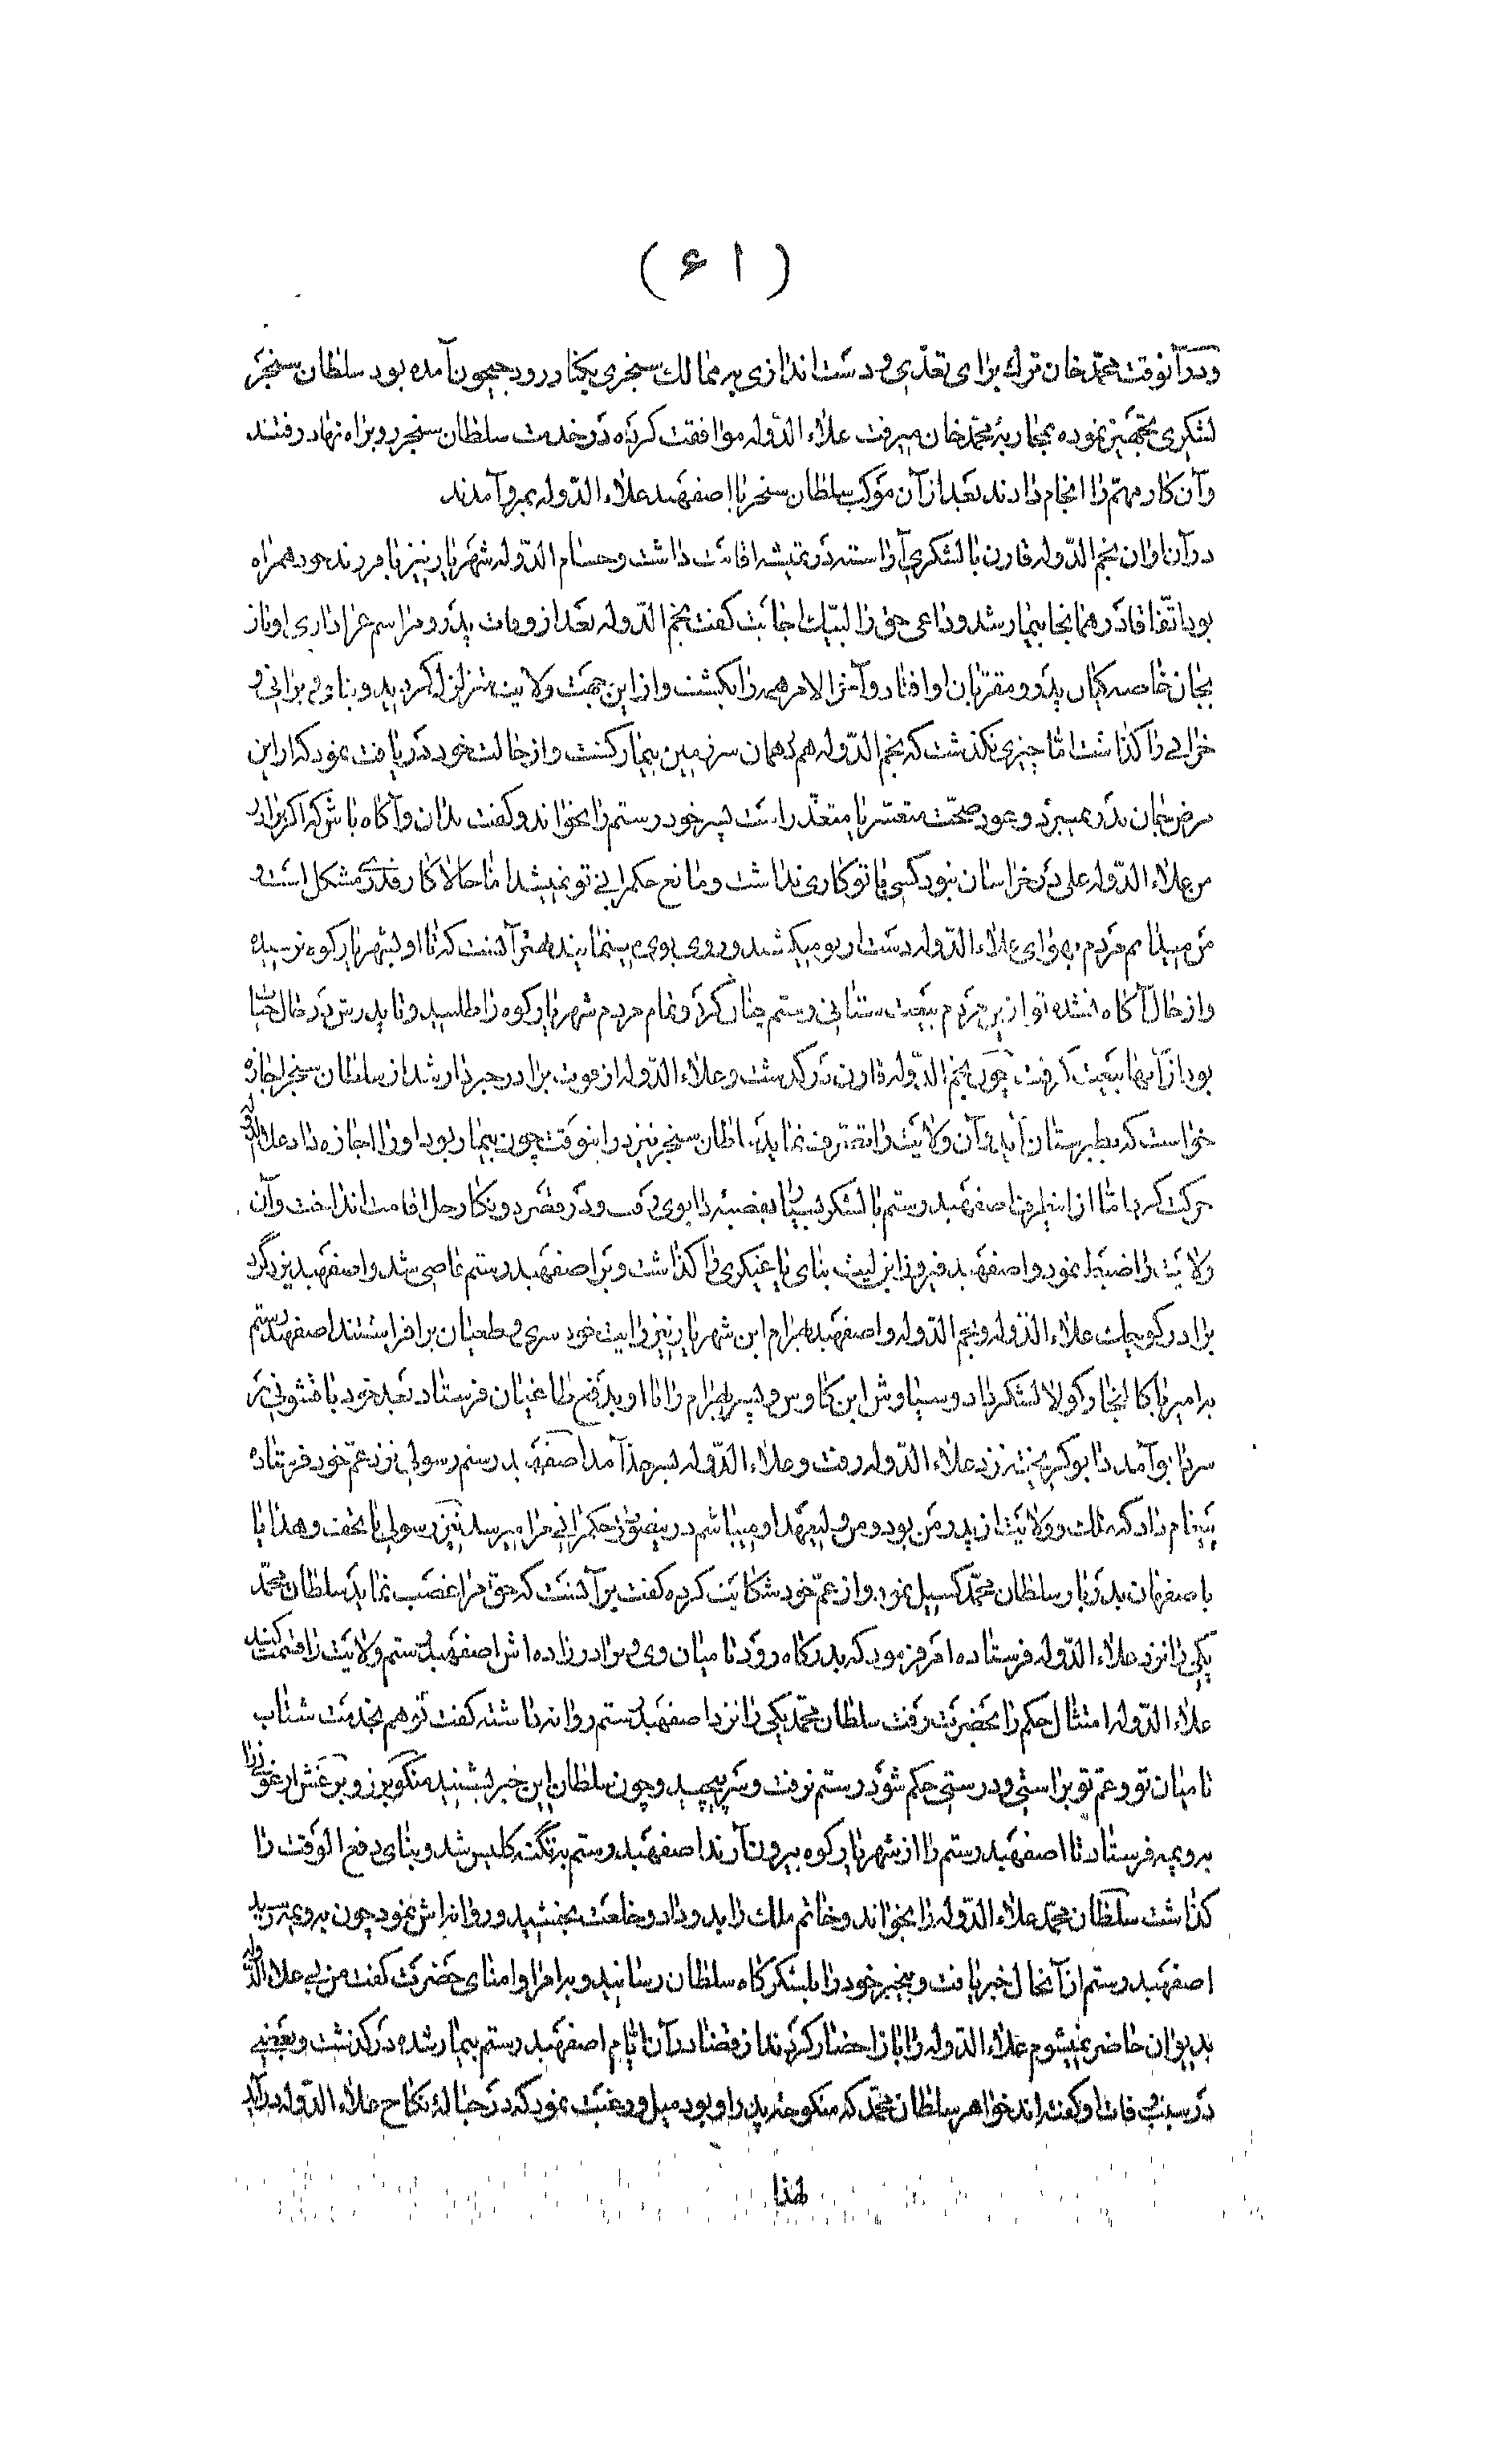 ( ۶۱ )
ودر آنوقت محمّد خان ترك برای تعدّی و دست اندازی به ممالك سنجری بکنار رود جیحون آمده بود سلطان سنجر
لشکری تجهیز نموده بمحاربهٔ محمّد خان میرفت علاء الدّوله موافقت کرده در خدمت سلطان سنجر رو براه نهاد رفتند
وآن کار مهمّ را انجام دادند بعد از آن موکب سلطان سنجر با اصفهبد علاء الدّوله بمرو آمدند
در آن اوان نجم الدّوله قارن با لشکری آراسته در تمیشه اقامت داشت وحسام الدّوله شهریار نیز با فرزند خود همراه
بود اتّفاقا در همانجا بیمار شد وداعی حق را لبّیك اجابت گفت نجم الدّوله بعد از وفات پدر ومراسم عزاداری او باز
بجان خاصه کیان پدر ومقرّبان او افتاد وآخر الامر همه را بکشت واز این جهت ولایت متزلزل گردید وبنای ویرانی و
خرابی را گذاشت امّا چیزی نگذشت که نجم الدّوله هم در همان سرزمین بیمار گشت واز حالت خود دریافت نمود که از این
مرض جان بدر نمیبرد وعود صحّت متعسّر یا متعذّر است پسر خود رستم را بخواند وگفت بدان وآگاه باش که اگر برادر
من علاء الدّوله علی در خراسان نبود کسی با تو کاری نداشت ومانع حکمرانی تو نمیشد امّا حالا کار قدری مشکل است و
من میدانم مردم بهوای علاء الدّوله دست از تو میکشند وروی بوی مینمایند بهتر آنست که تا او بشهریار کوه نرسیده
واز حال آگاه نشده تو از این مردم بیعت ستانی رستم چنان کرد وتمام مردم شهریار کوه را طلبید وتا پدرش در حال حیات
بود از آنها بیعت گرفت چون نجم الدّوله قارن درگذشت وعلاء الدّوله از موت برادر خبردار شد از سلطان سنجر اجازه
خواست که بطبرستان آید وآن ولایت را تصرّف نماید سلطان سنجر نیز در اینوقت چون بیمار بود او را اجازه داد علاء الدّوله
حرکت کرد امّا از اینطرف اصفهبد رستم با لشکر بسیار
ولایت را ضبط نمود واصفهبد فیروز ابن لیث بنای یاغیگری را گذاشت وبر اصفهبد رستم عاصی شد واصفهبد یزدگرد
برادر کوچك علاء الدّوله ونجم الدّوله واصفهبد بهرام ابن شهریار نیز رایت خودسری وطغیان برافراشتند اصفهبد رستم
بدامیر باکالنجار کولا لشکر داد وسیاوش ابن کاوس وپسر بهرام را با او بدفع طاغیان فرستاد بعد خود با قشونی
نزد علاء الدّوله رفت وعلاء الدّوله بسرحدّ آمد اصفهبد رستم رسولی نزد عمّ خود فرستاده
پیغام داد که ملك وولایت از پدر من بود ومن ولیعهد او میباشم در اینصورت حکمرانی مرا میرسد نیز رسولی با تحف وهدایا
باصفهان بدربار سلطان محمّد گسیل نمود واز عمّ خود شکایت کرده گفت بر آنست که حقّ مرا غصب نماید سلطان محمّد
یکی را نزد علاء الدّوله فرستاده امر فرمود که بدرگاه رود تا میان وی وبرادرزاده اش اصفهبد رستم ولایت را قسمت کنند
علاء الدّوله امتثال حکم را بحضرت رفت سلطان محمّد یکی را نزد اصفهبد رستم روانه داشته گفت تو هم بخدمت شتاب
تا میان تو وعمّ تو براستی ودرستی حکم شود رستم نرفت وسر پیچید وچون سلطان این خبر بشنید منکوبرز وبرغش ارغونی را
بدویمه فرستاد تا اصفهبد رستم را از شهریار کوه بیرون آرند اصفهبد رستم بتنگه کلیس شد وبنای دفع الوقت را
گذاشت سلطان محمّد علاء الدّوله را بخواند وخاتم ملك را بدو داد وخلعت بخشید وروانه اش نمود چون بدویمه رسید
اصفهبد رستم از آنحال خبر یافت وبیخبر خود را بلشکرگاه سلطان رسانید وبامرا وامنای حضرت گفت من بی علاء الدّوله
بدیوان حاضر نمیشوم علاء الدّوله را باز احضار کردند از قضا در آن ایّام اصفهبد رستم بیمار شده درگذشت وبعضی
در سبب وفات او گفته اند خواهر سلطان محمّد که منکوحهٔ پدر او بود میل ورغبت نمود که در حبالهٔ نکاح علاء الدّوله درآید
لهذا